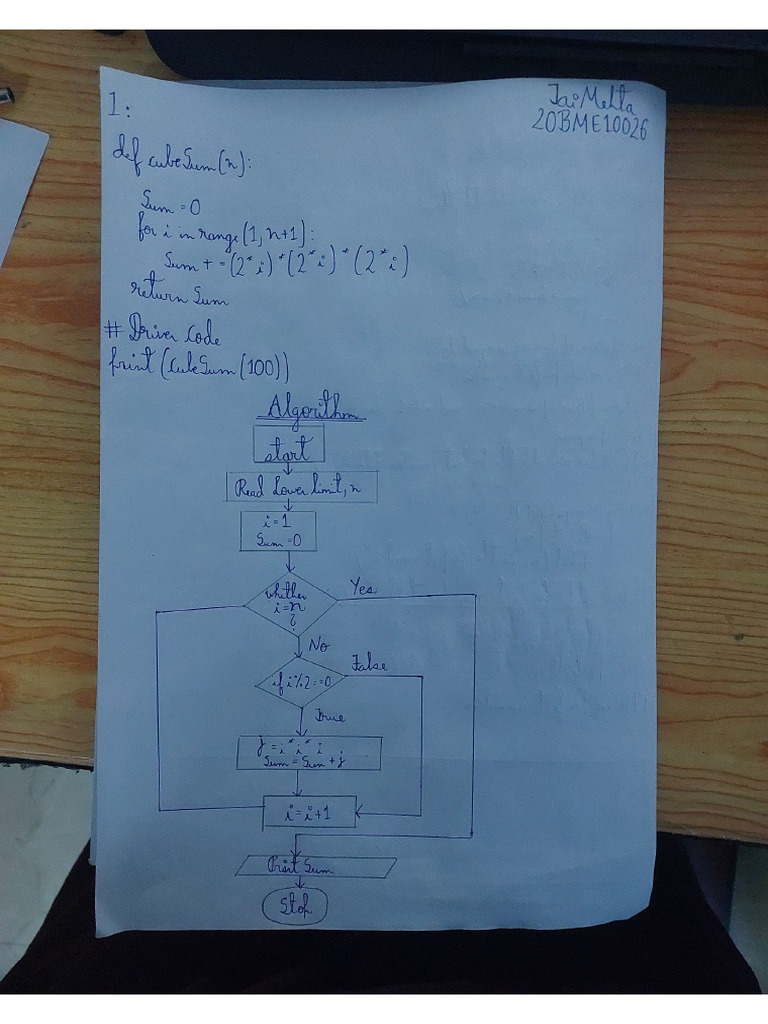 Jai Mehta
20BME10026
1:
def cubeSum(n):
Sum = 0
for i in range(1, n+1):
Sum + = (2*i)*(2*i)*(2*i)
return Sum
# Driver Code
print(CubeSum(100))
Algorithm
start
Read Lower limit, n
i=1
Sum=0
whether
i=n
?
Yes
No
if i%2==0
False
True
j=i*i*i
Sum=Sum+j
i=i+1
Print Sum
Stop